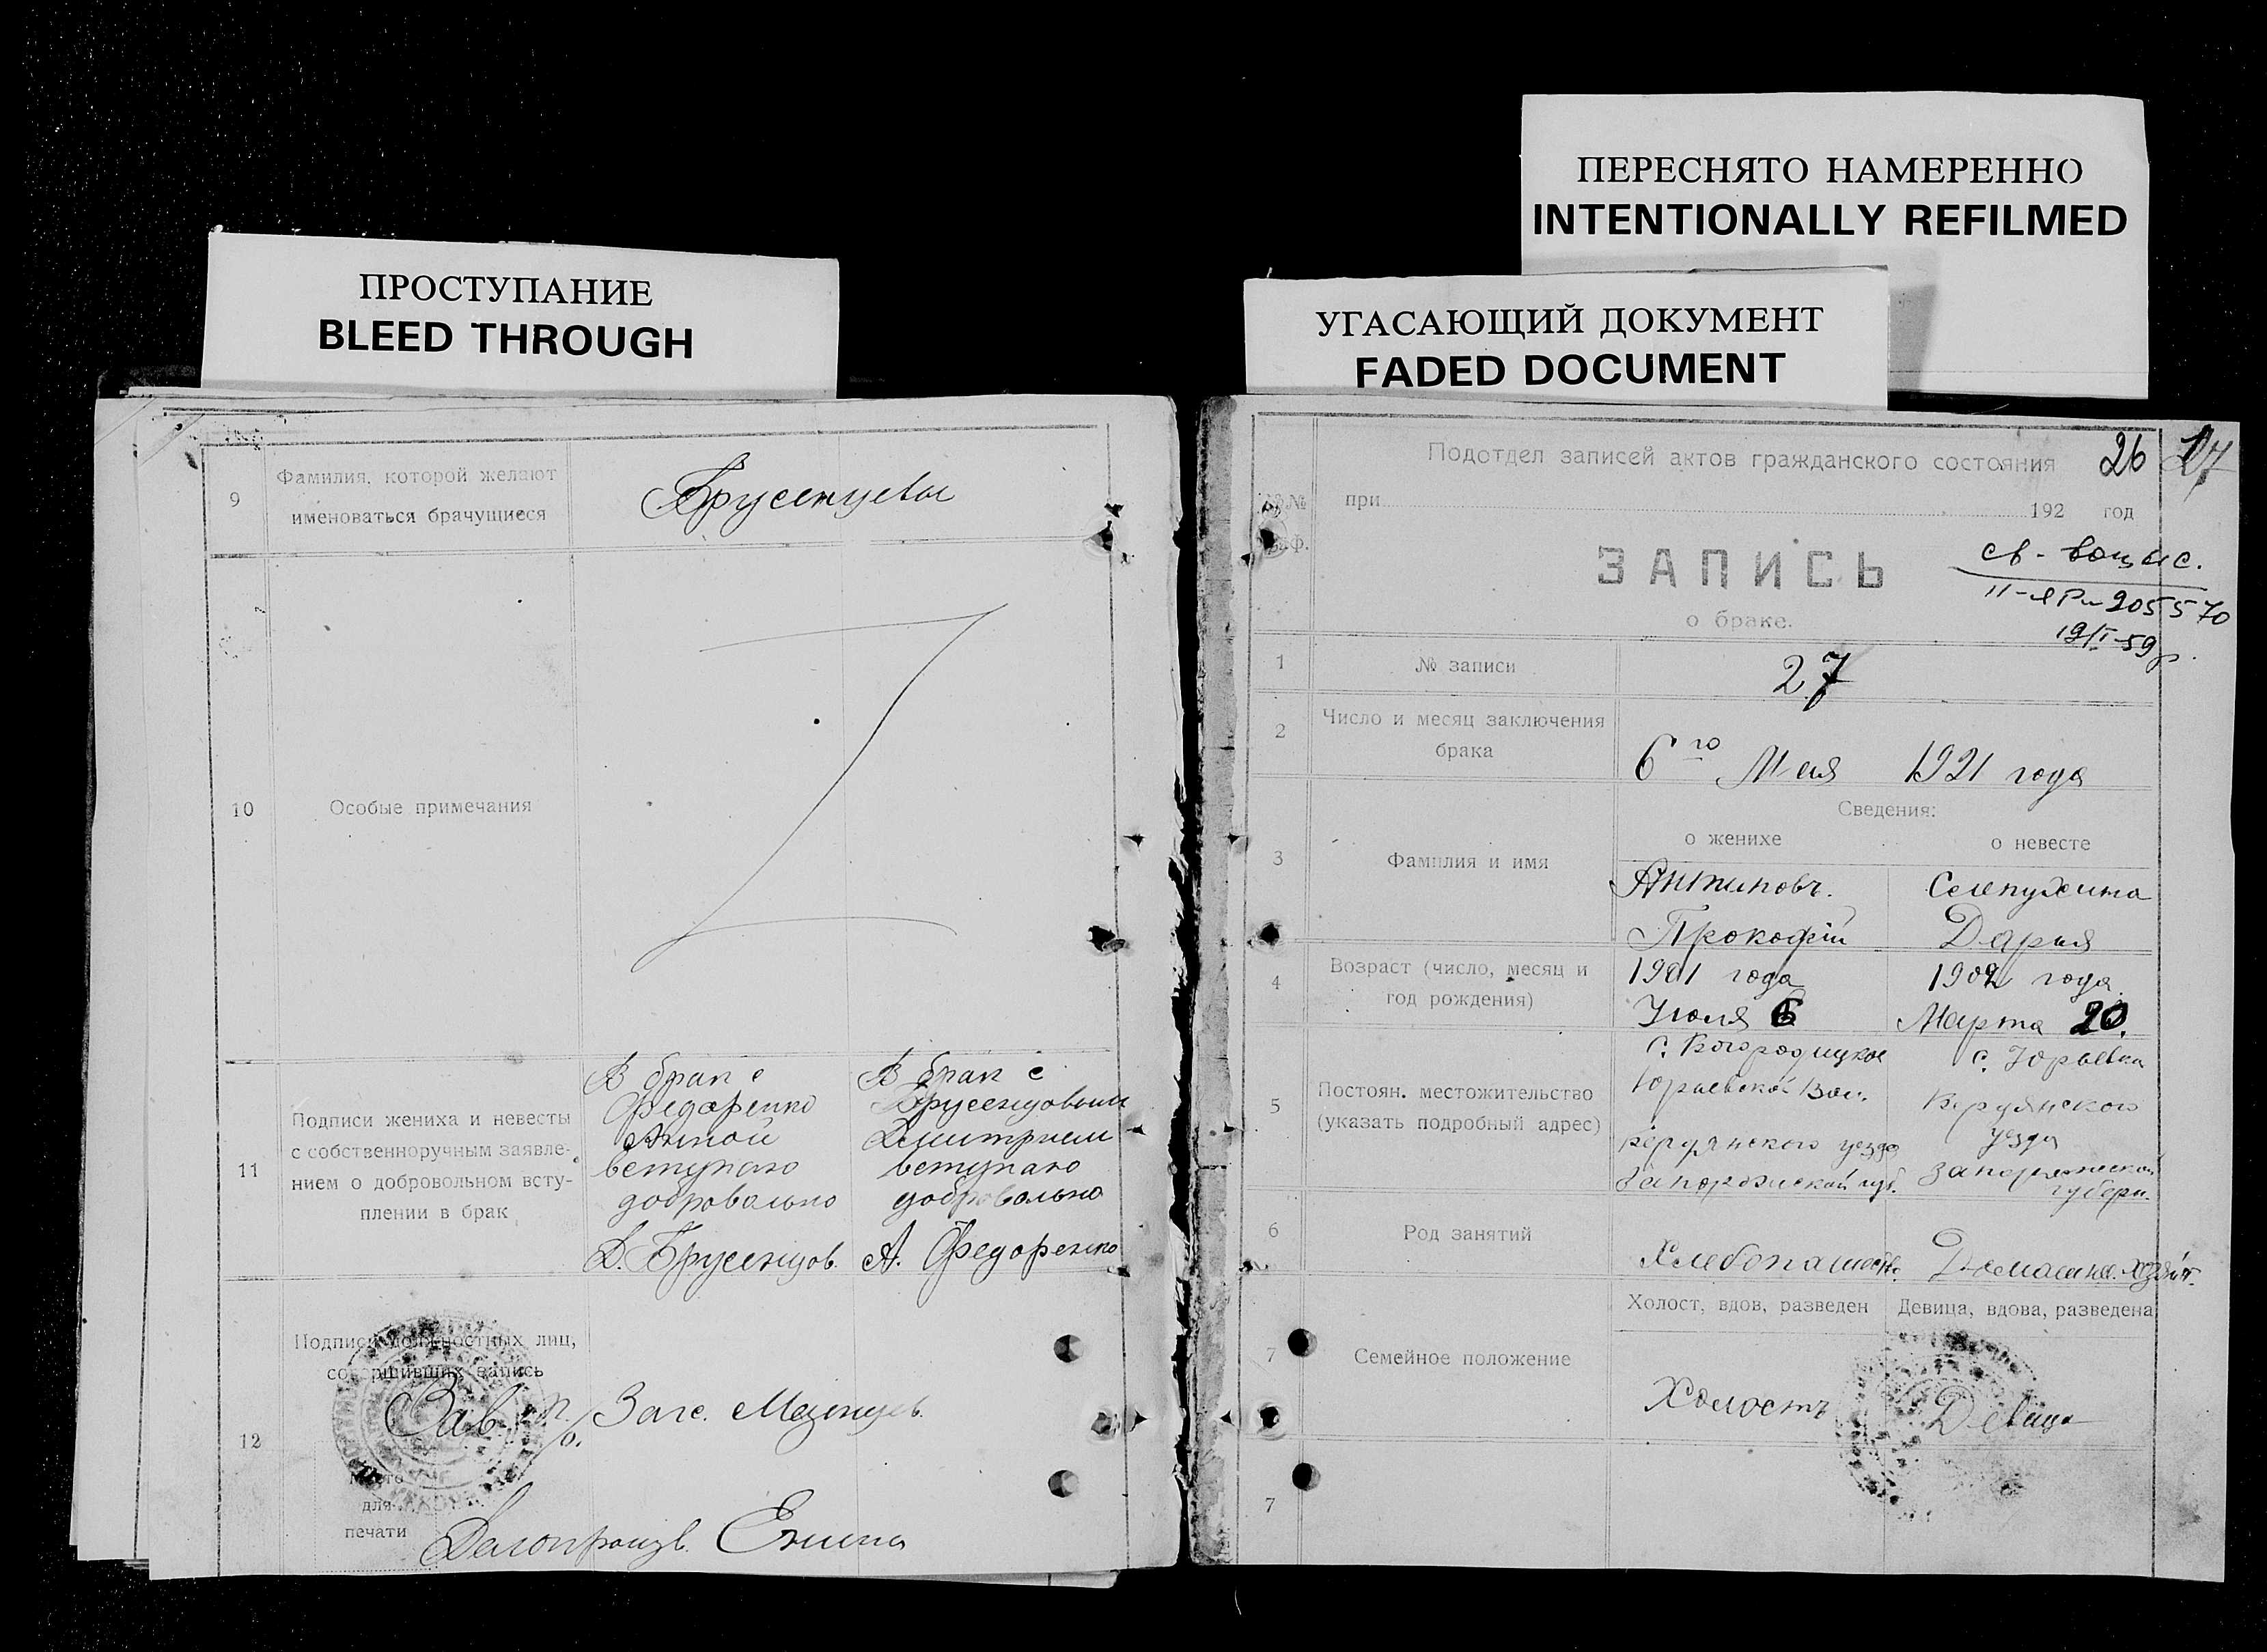 ПЕРЕСНЯТО НАМЕРЕННО
INTENTIONALLY REFILMED
ПРОСТУПАНИЕ
BLEED THROUGH
УГАСАЮЩИЙ ДОКУМЕНТ
FADED DOCUMENT
9
Фамилия, которой желают
именоваться брачущиеся
Брусенцевы
10
Особые примечания
11
Подписи жениха и невесты
с собственноручным заявле-
нием о добровольном всту-
плении в брак
В брак с
Федоренко
Анной
вступаю
добровольно
Д. Брусенцов.
В брак с
Брусенцовым
Дмитрием
вступаю
добровольно
А. Федоренко
12
Подписи должностных лиц,
совершивших запись
Зав. п/о. Загс. Мезенцев.
Место
для
печати
Делопроизв. Енина
Подотдел записей актов гражданского состояния
26
27
№№
при
192 год
граф.
ЗАПИСЬ
о браке.
св-
205570
19/I-59
1
№ записи
27
2
Число и месяц заключения
брака
6го Мая 1921 года
Сведения:
о женихе
о невесте
3
Фамилия и имя
Антиповъ.
Прокофій
Селепухина
Дарья
4
Возраст (число, месяц и
год рождения)
1901 года
Июля 6
1902 года.
Марта 20.
5
Постоян. местожительство
(указать подробный адрес)
с. Богородицкое
Юрьевской Вол.
Бердянского уезда
Запорожской губ.
с. Юрьевка
Бердянского
уезда
Запорожской
губерн.
6
Род занятий
Хлебопашеств.
Домашнее хозяйст.
7
Семейное положение
Холост, вдов, разведен
Девица, вдова, разведена
Холостъ
Девица
7